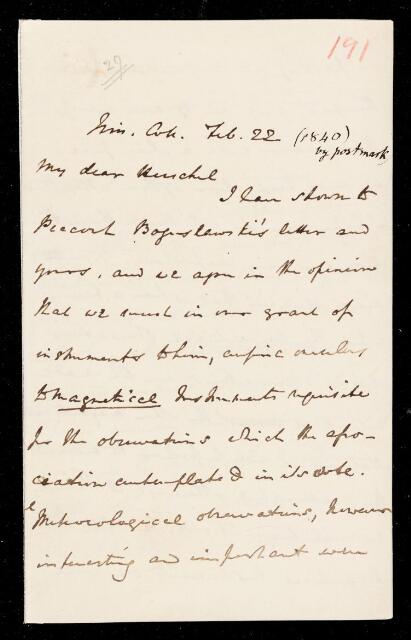 191
29
Trin. Coll. Feb. 22 (1840)
by postmark
My dear Herschel
I have shown to
Peacock Boguslawski's letter and
yours, and we agree in the opinion
that we must in our grant of
instruments to him, confine ourselves
to magnetical Instruments requisite
for the observations which the asso-
ciation contemplated in its vote.
Meteorological observations, however
interesting and important were